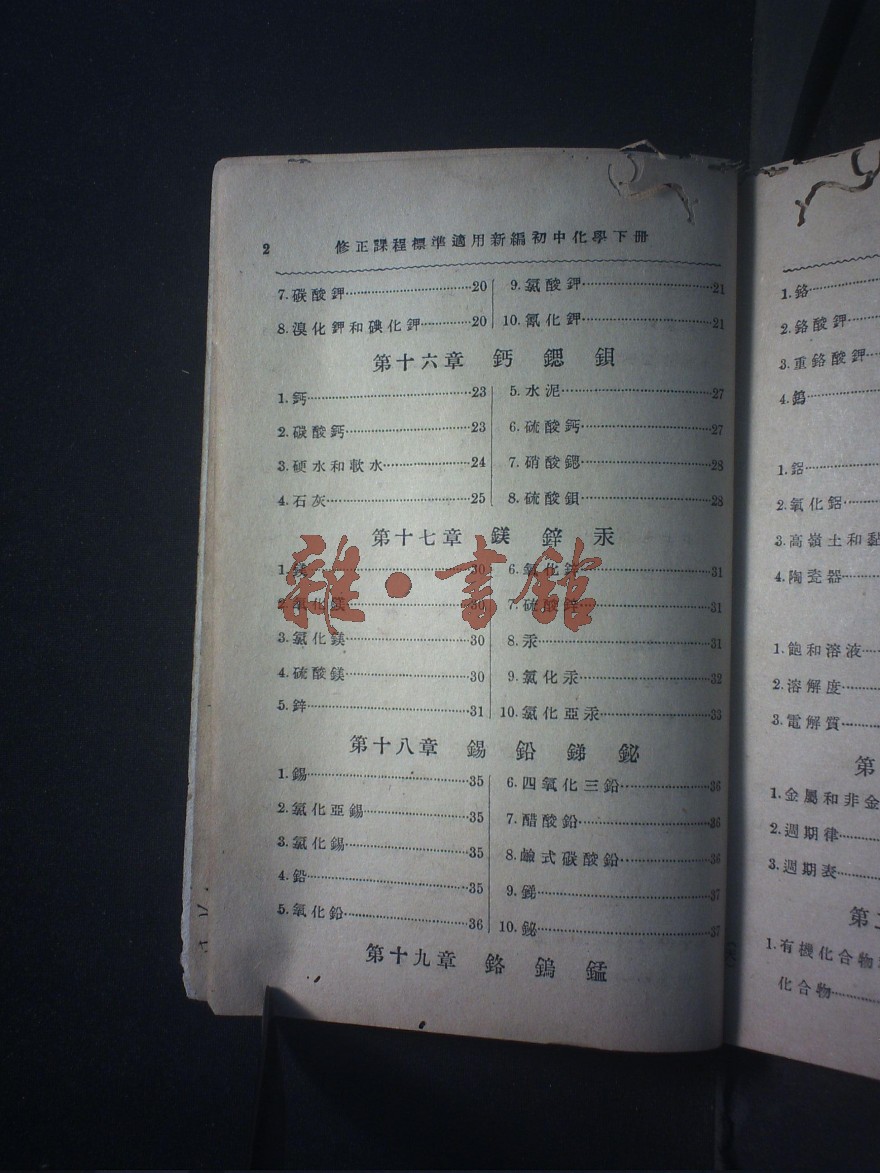 2 修正課程標準適用新編初中化學下冊
7. 碳酸鉀……20
8. 溴化鉀和碘化鉀……20
9. 氯酸鉀……21
10. 氰化鉀……21
第十六章 鈣 鍶 鋇
1. 鈣……23
2. 碳酸鈣……23
3. 硬水和軟水……24
4. 石灰……25
5. 水泥……27
6. 硫酸鈣……27
7. 硝酸鍶……28
8. 硫酸鋇……28
第十七章 鎂 鋅 汞
1. 鎂……30
2. 氧化鎂……30
3. 氯化鎂……30
4. 硫酸鎂……30
5. 鋅……31
6. 氧化鋅……31
7. 硫酸鋅……31
8. 汞……31
9. 氯化汞……32
10. 氯化亞汞……33
雜·書館
第十八章 錫 鉛 銻 鉍
1. 錫……35
2. 氯化亞錫……35
3. 氯化錫……35
4. 鉛……35
5. 氧化鉛……36
6. 四氧化三鉛……36
7. 醋酸鉛……36
8. 鹼式碳酸鉛……36
9. 銻……37
10. 鉍……37
第十九章 鉻 鎢 錳
1. 鉻……
2. 鉻酸鉀……
3. 重鉻酸鉀……
4. 鎢……
1. 鋁……
2. 氧化鋁……
3. 高嶺土和黏
4. 陶瓷器……
1. 飽和溶液……
2. 溶解度……
3. 電解質……
第
1. 金屬和非金
2. 週期律……
3. 週期表……
第
1. 有機化合物
化合物……